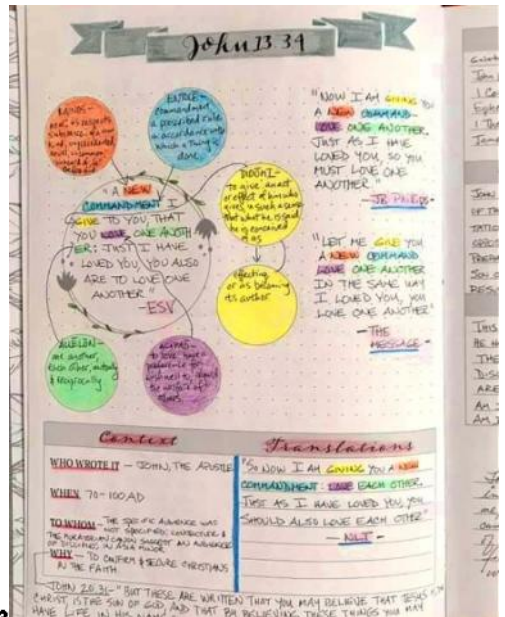 John 13 34
KAINOS-
as respects
substance, of a new
kind, unprecedented,
novel, uncommon,
unheard of
ENTOLE-
commandment,
a prescribed rule
in accordance with
which a thing is
done,
DIDOMI-
to give, an act
or effect of him who
gives, in such a sense
that what he is said
he is conceived
of as
effecting
or as becoming
its author
"A NEW
COMMANDMENT I
GIVE TO YOU, THAT
YOU LOVE ONE ANOTH
ER: JUST AS I HAVE
LOVED YOU, YOU ALSO
ARE TO LOVE ONE
ANOTHER."
-ESV
ALLELON-
one another,
each other, mutually
& reciprocally
AGAPAO-
to love, have a
preference for
wish well to, regard
the welfare of
others
"NOW I AM GIVING YOU
A NEW COMMAND-
LOVE ONE ANOTHER.
JUST AS I HAVE
LOVED YOU, SO YOU
MUST LOVE ONE
ANOTHER"
- JB PHILLIPS -
"LET ME GIVE YOU
A NEW COMMAND
LOVE ONE ANOTHER
IN THE SAME WAY
I LOVED YOU, YOU
LOVE ONE ANOTHER"
-THE
MESSAGE-
Context
WHO WROTE IT - JOHN, THE APOSTLE
WHEN 70-100 AD
TO WHOM - THE SPECIFIC AUDIENCE WAS
NOT SPECIFIED, CONJECTURE &
THE MURATORIAN CANON SUGGEST AN AUDIENCE
OF DISCIPLES IN ASIA MINOR
WHY - TO CONFIRM & SECURE CHRISTIANS
IN THE FAITH
Translations
"SO NOW I AM GIVING YOU A NEW
COMMANDMENT: LOVE EACH OTHER.
JUST AS I HAVE LOVED YOU, YOU
SHOULD ALSO LOVE EACH OTHER"
- NLT -
JOHN 20:31 - "BUT THESE ARE WRITTEN THAT YOU MAY BELIEVE THAT JESUS IS THE
CHRIST IS THE SON OF GOD AND THAT BY BELIEVING THESE THINGS YOU MAY
HAVE LIFE IN HIS NAME